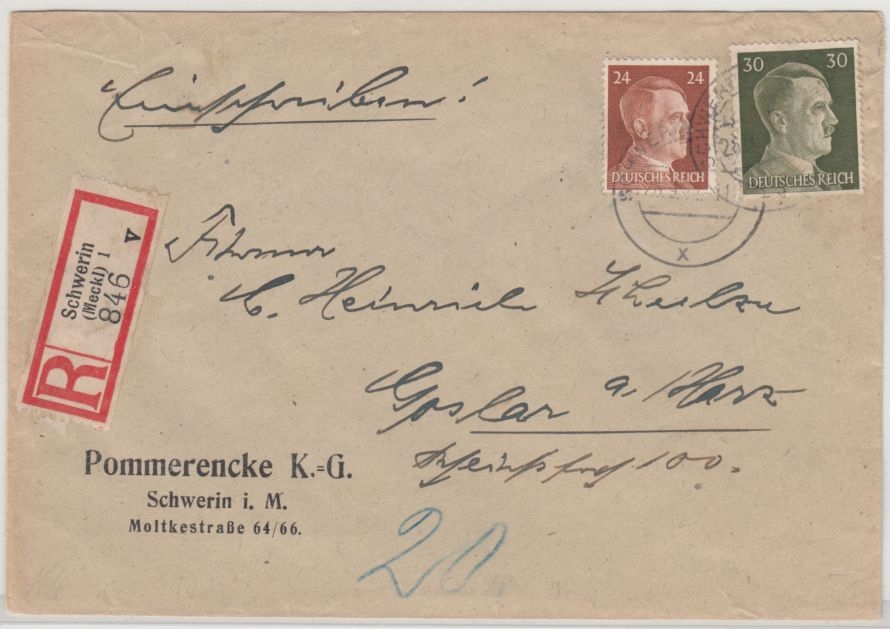 Einschreiben!
24 24
DEUTSCHES REICH
30 30
DEUTSCHES REICH
x
R
Schwerin
(Meckl) 1
846 v
Firma
C. Heinrich
Goslar a. Harz
100.
Pommerencke K.=G.
Schwerin i. M.
Moltkestraße 64/66.
20